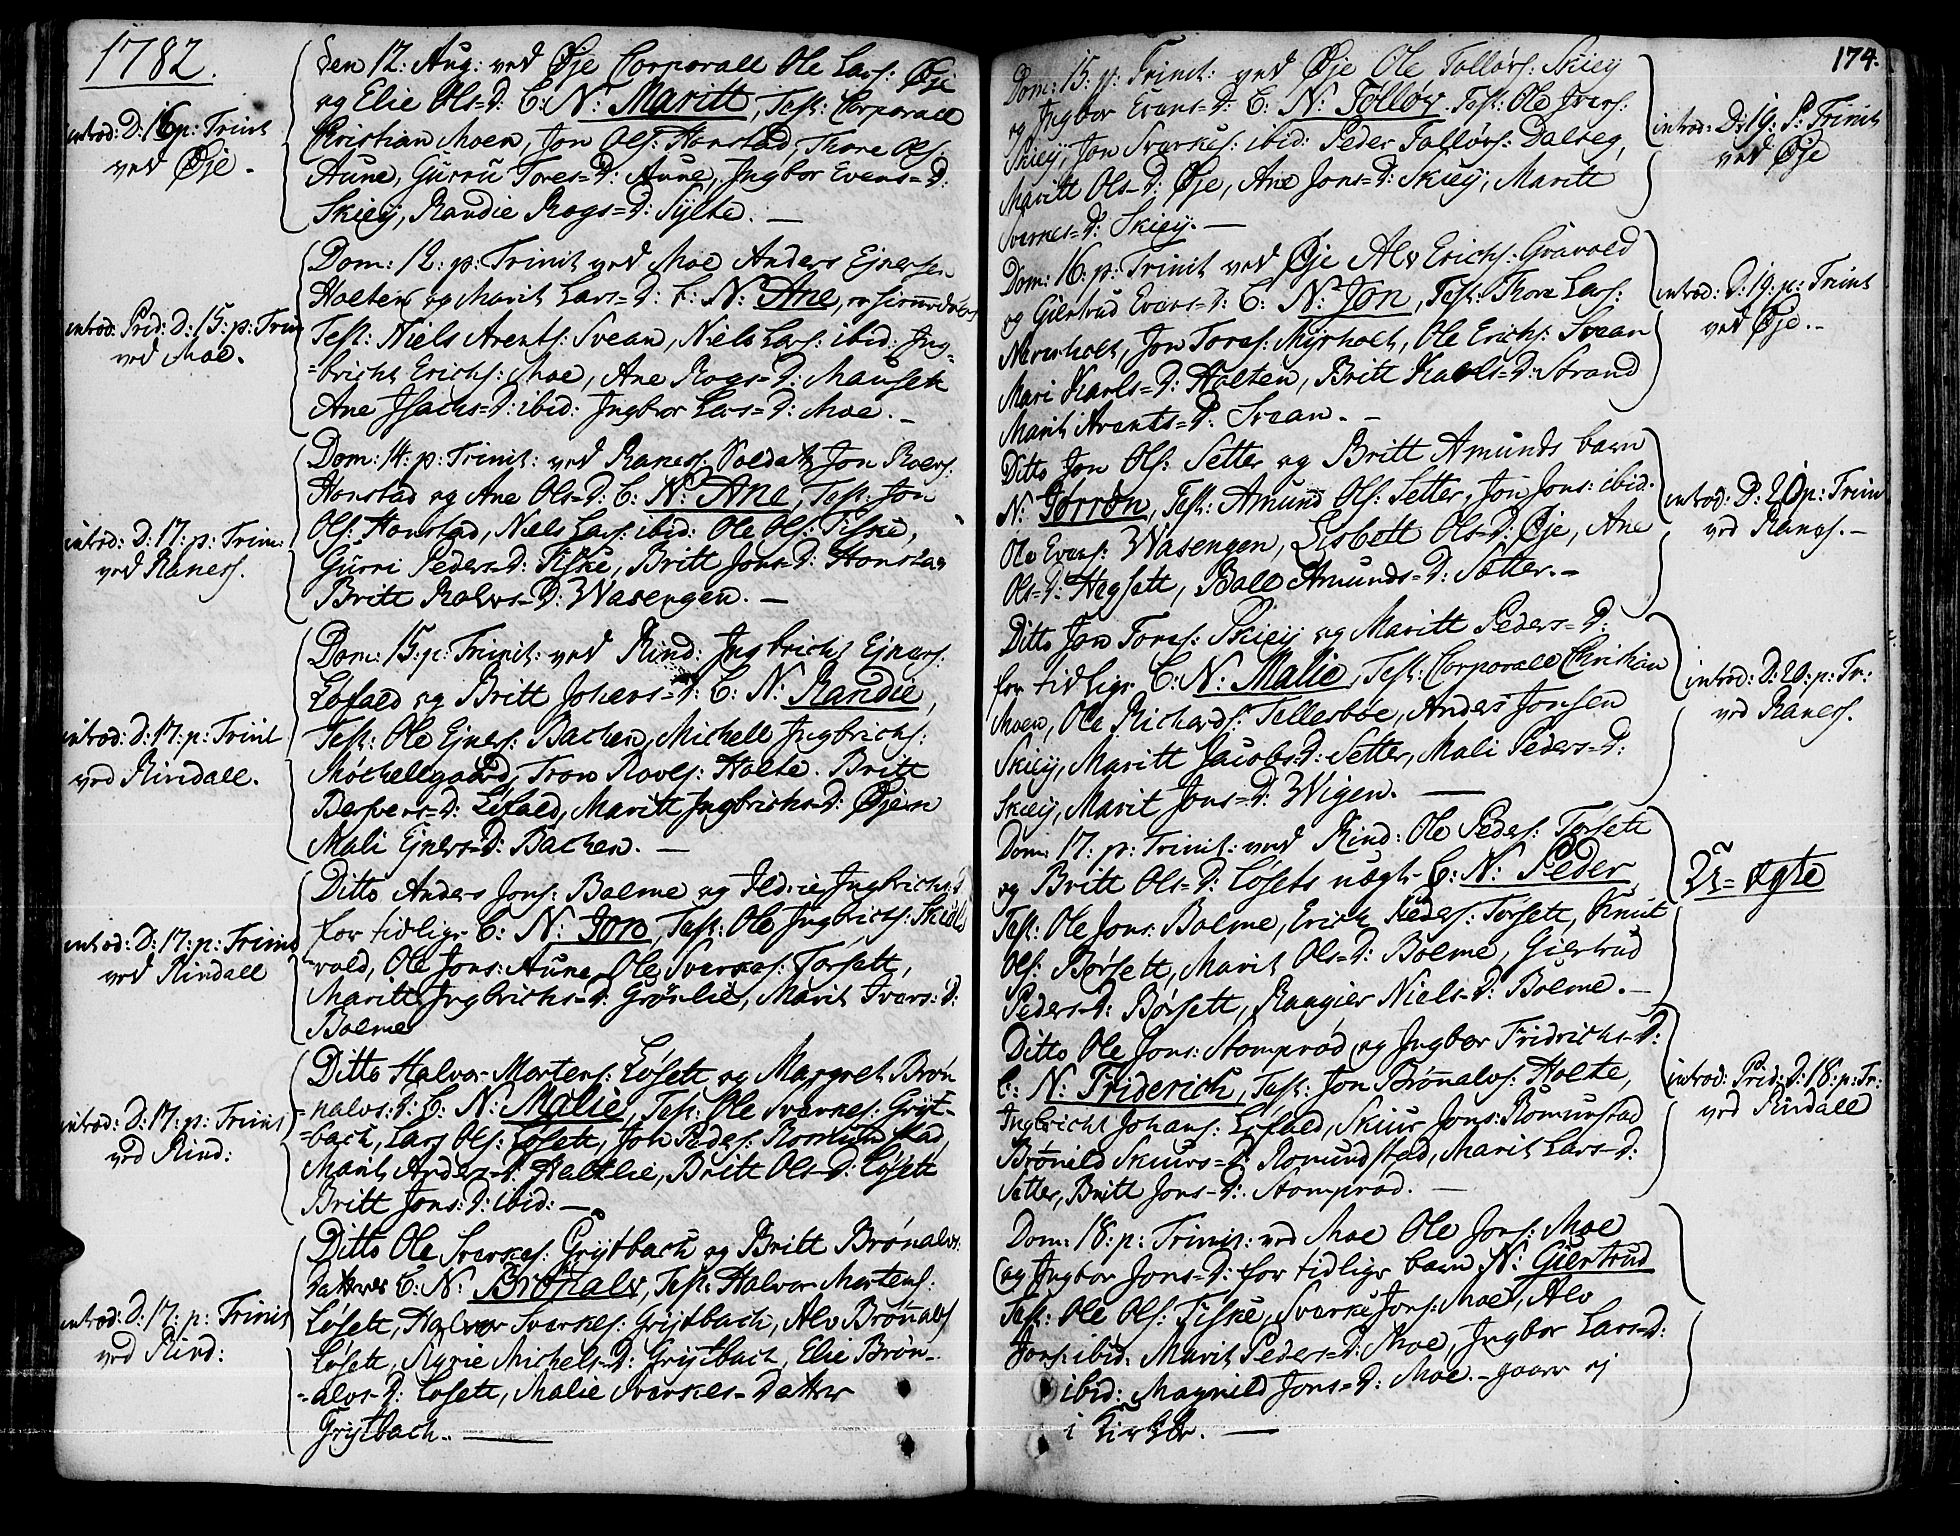 1782.
den 12: Aug: ved Øje Corporall Ole Lars: Øje
og Elie Ols=D: C: N: Maritt, Test: Corporall
Christian Moen, Jon Ols: Honstad, Thore Ols:
Aune, Gurru Tores=D: Aune, Ingbor Evens=D:
Skieÿ, Randie Rogs=D: Sylte. —
introd: D: 16 p: Trinit
ved Øje -
Dom: 12: p: Trinit ved Moe Anders Ejnersen
Holten og Marit Lars=D: C: N: Ane,
Test: Niels Arents: Svean, Niels Lars: ibid: Ing=
=bricht Erichs: Moe, Ane Rogs=D: Mauseth
Ane Isachs=D: ibid: Ingbor Lars=D: Moe. -
introd: Prid: D: 15: p: Trin
ved Moe.
Dom: 14: p: Trinit: ved Raness: Soldatt Jon Roers:
Honstad og Ane Ols=D: C: N: Ane, Test: Jon
Ols: Honstad, Niels Lars: ibid: Ole Ols: Fiske,
Gurri Peders=D: Fiske, Britt Jons=D: Honstad
Britt Rolvs=D: Wasengen. —
introd: D: 17: p: Trin:
ved Raness.
Dom: 15: p: Trinit: ved Rind: Ingbricht Ejners:
Løfald og Britt Johans=D: C: N: Randie,
Test: Ole Ejners: Bachen, Michell Ingbrichs:
Møchellgaard, Tron Rolfs: Holte. Britt
Bersvens=D: Løfald, Maritt Ingbrichs=D: Øjen
Mali Ejners=D: Bachen. —
introd: D: 17: p: Trinit
ved Rindall.
Ditto Anders Jons: Bolme og Ildrie Ingbrichs=D
for tidlige C: N: Jon, Test: Ole Ingbrichs: Skiøls
vold, Ole Jons: Aune, Ole Sverkes: Torsett,
Maritt Ingbrichs=D: Grønlie, Marit Ivers: D:
Bolme
introd: D: 17: p: Trinit
ved Rindall
Ditto Halvor Mortens: Løsett og Margret Brøn
nalvs: D: C: N: Malie, Test: Ole Sverkes: Gryt-
=bach, Lars Ols: Løsett, Jon Peders: Romundstad,
Marit Anders=D: Haltlie, Britt Ols=D: Løsett
Britt Jons: D: ibid: —
introd: D: 17: p: Trinit
ved Rind:
Ditto Ole Sverkes: Grytbach og Britt Brønalvs:
Datters C: N: Brønalv, Test: Halvor Mortens:
Løsett, Halvor Sverkes: Grytbach, Alv Brønalvs
Løsett, Sigrie Michels=D: Grytbach, Elie Brøn-
-alvs=D: Løsett, Malie Sverkes=Datter
Grytbach. —
introd: D: 17: p: Trinit
ved Rind:
174.
Dom: 15: p: Trinit: ved Øje Ole Follørs: Skieÿ
og Ingbor Evens=D: C: N: Follov. Test: Ole Ivers:
Skieÿ, Jon Sverkes: ibid: Peder Follørs: Dalseg,
Maritt Ols=D: Øje, Ane Jons=D: Skieÿ, Maritt
Sverkes=D: Skieÿ. —
introd: D: 19: P: Trinit
ved Øje
Dom: 16: p: Trinit ved Øje Alv Erichs: Gravold
og Giertrud Evens=D: C: N: Jon, Test: Thore Lars:
Nerusholt, Jon Tores: Myrholt, Ole Erichs: Svean
Mari Karls=D: Holten, Britt Karls=D: Strand
Marit Arents=D: Svean. -
introd: D: 19: p: Trinit
ved Øje. -
Ditto Jon Ols: Setter og Britt Amunds barn
N: Gorron, Test: Amund Ols: Setter, Jon Jons: ibid:
Ole Evens: Wasengen, Lisbett Ols=D: Øje, Ane
Ols=D: Hegsett, Boll Amunds=D: Setter. -
introd: D: 20 p: Trin
ved Raness. -
Ditto Jon Tores: Skieÿ og Maritt Peders=D:
for tidlige C: N: Malie, Test: Corporall Christian
Moen, Ole Richards: Tellesbøe, Anders Jonsen
Skieÿ, Maritt Jacobs=D: Setter, Mali Peders=D:
Skieÿ, Marit Jons=D: Wigen. —
introd: D: 20: p: Tr:
ved Raness.
Dom: 17: p: Trinit: ved Rind: Ole Peders: Torsett
og Britt Ols=D: Løsets uægte C: N: Peder,
Test: Ole Jons: Bolme, Erich Peders: Torsett, Knut
Ols: Børsett, Marit Ols=D: Bolme, Giertrud
Peders=D: Børsett, Rangier Niels=D: Bolme. -
U=ægte
Ditto Ole Jons: Stomprød og Ingbor Fridrichs=D:
C: N: Friderich, Test: Jon Brønalvs: Holte,
Ingbricht Johans: Løfald, Skiur Jons: Romunstad
Brønild Skiurs=D: Romundstad, Marit Lars=D:
Setter, Britt Jons=D: Stomprød. —
introd: Prid: D: 18: p: Tr:
ved Rindall
Dom: 18: p: Trinit: ved Moe Ole Jons: Moe
og Ingbor Jons=D: for tidlige barn N: Giertrud
Test: Ole Ols: Fiske, Sverke Jons: Moe, Alv
Jons: ibid: Marit Peders=D: Moe, Ingbor Lars=D:
ibid: Magnild Jons=D: Moe. - gaaer ej
i Kirke. —